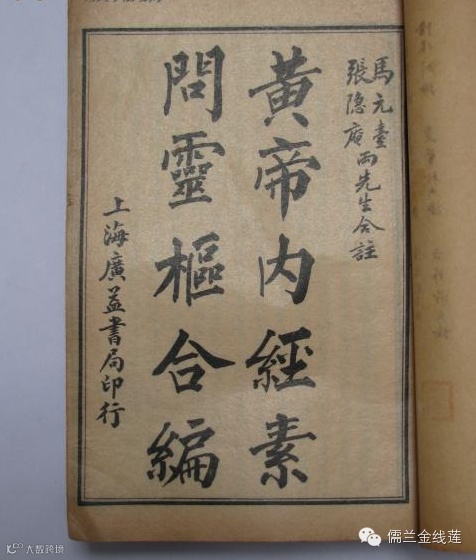 馬元臺
張隐庵兩先生合註
黃帝内經素
問靈樞合編
上海廣益書局印行
儒兰金线莲
大数跨境